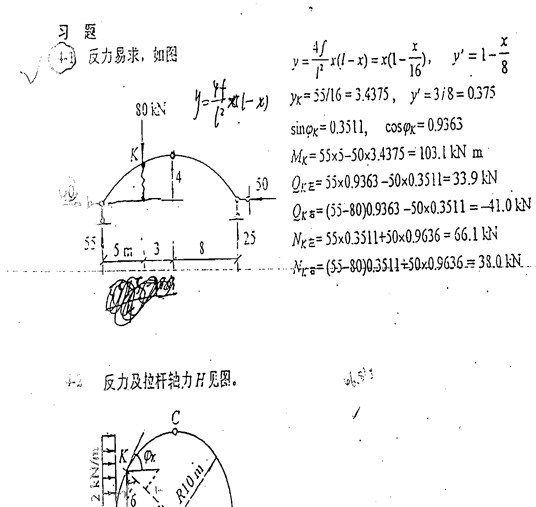 习 题
4-1 反力易求，如图
y=4f/l² x(l-x)=x(1-x/16), y'=1-x/8
y=4f/l² x(l-x)
y_K=55/16=3.4375, y'=3/8=0.375
80 kN
sinφ_K=0.3511, cosφ_K=0.9363
K
M_K=55×5-50×3.4375=103.1 kN m
4
50
Q_K左=55×0.9363-50×0.3511=33.9 kN
Q_K右=(55-80)0.9363-50×0.3511=-41.0 kN
55
25
N_K左=55×0.3511+50×0.9636=66.1 kN
5 m 3 8
N_K右=(55-80)0.3511+50×0.9636=38.0 kN
4-2 反力及拉杆轴力H见图。
C
K
φ_K
2 kN/m
R10 m
6